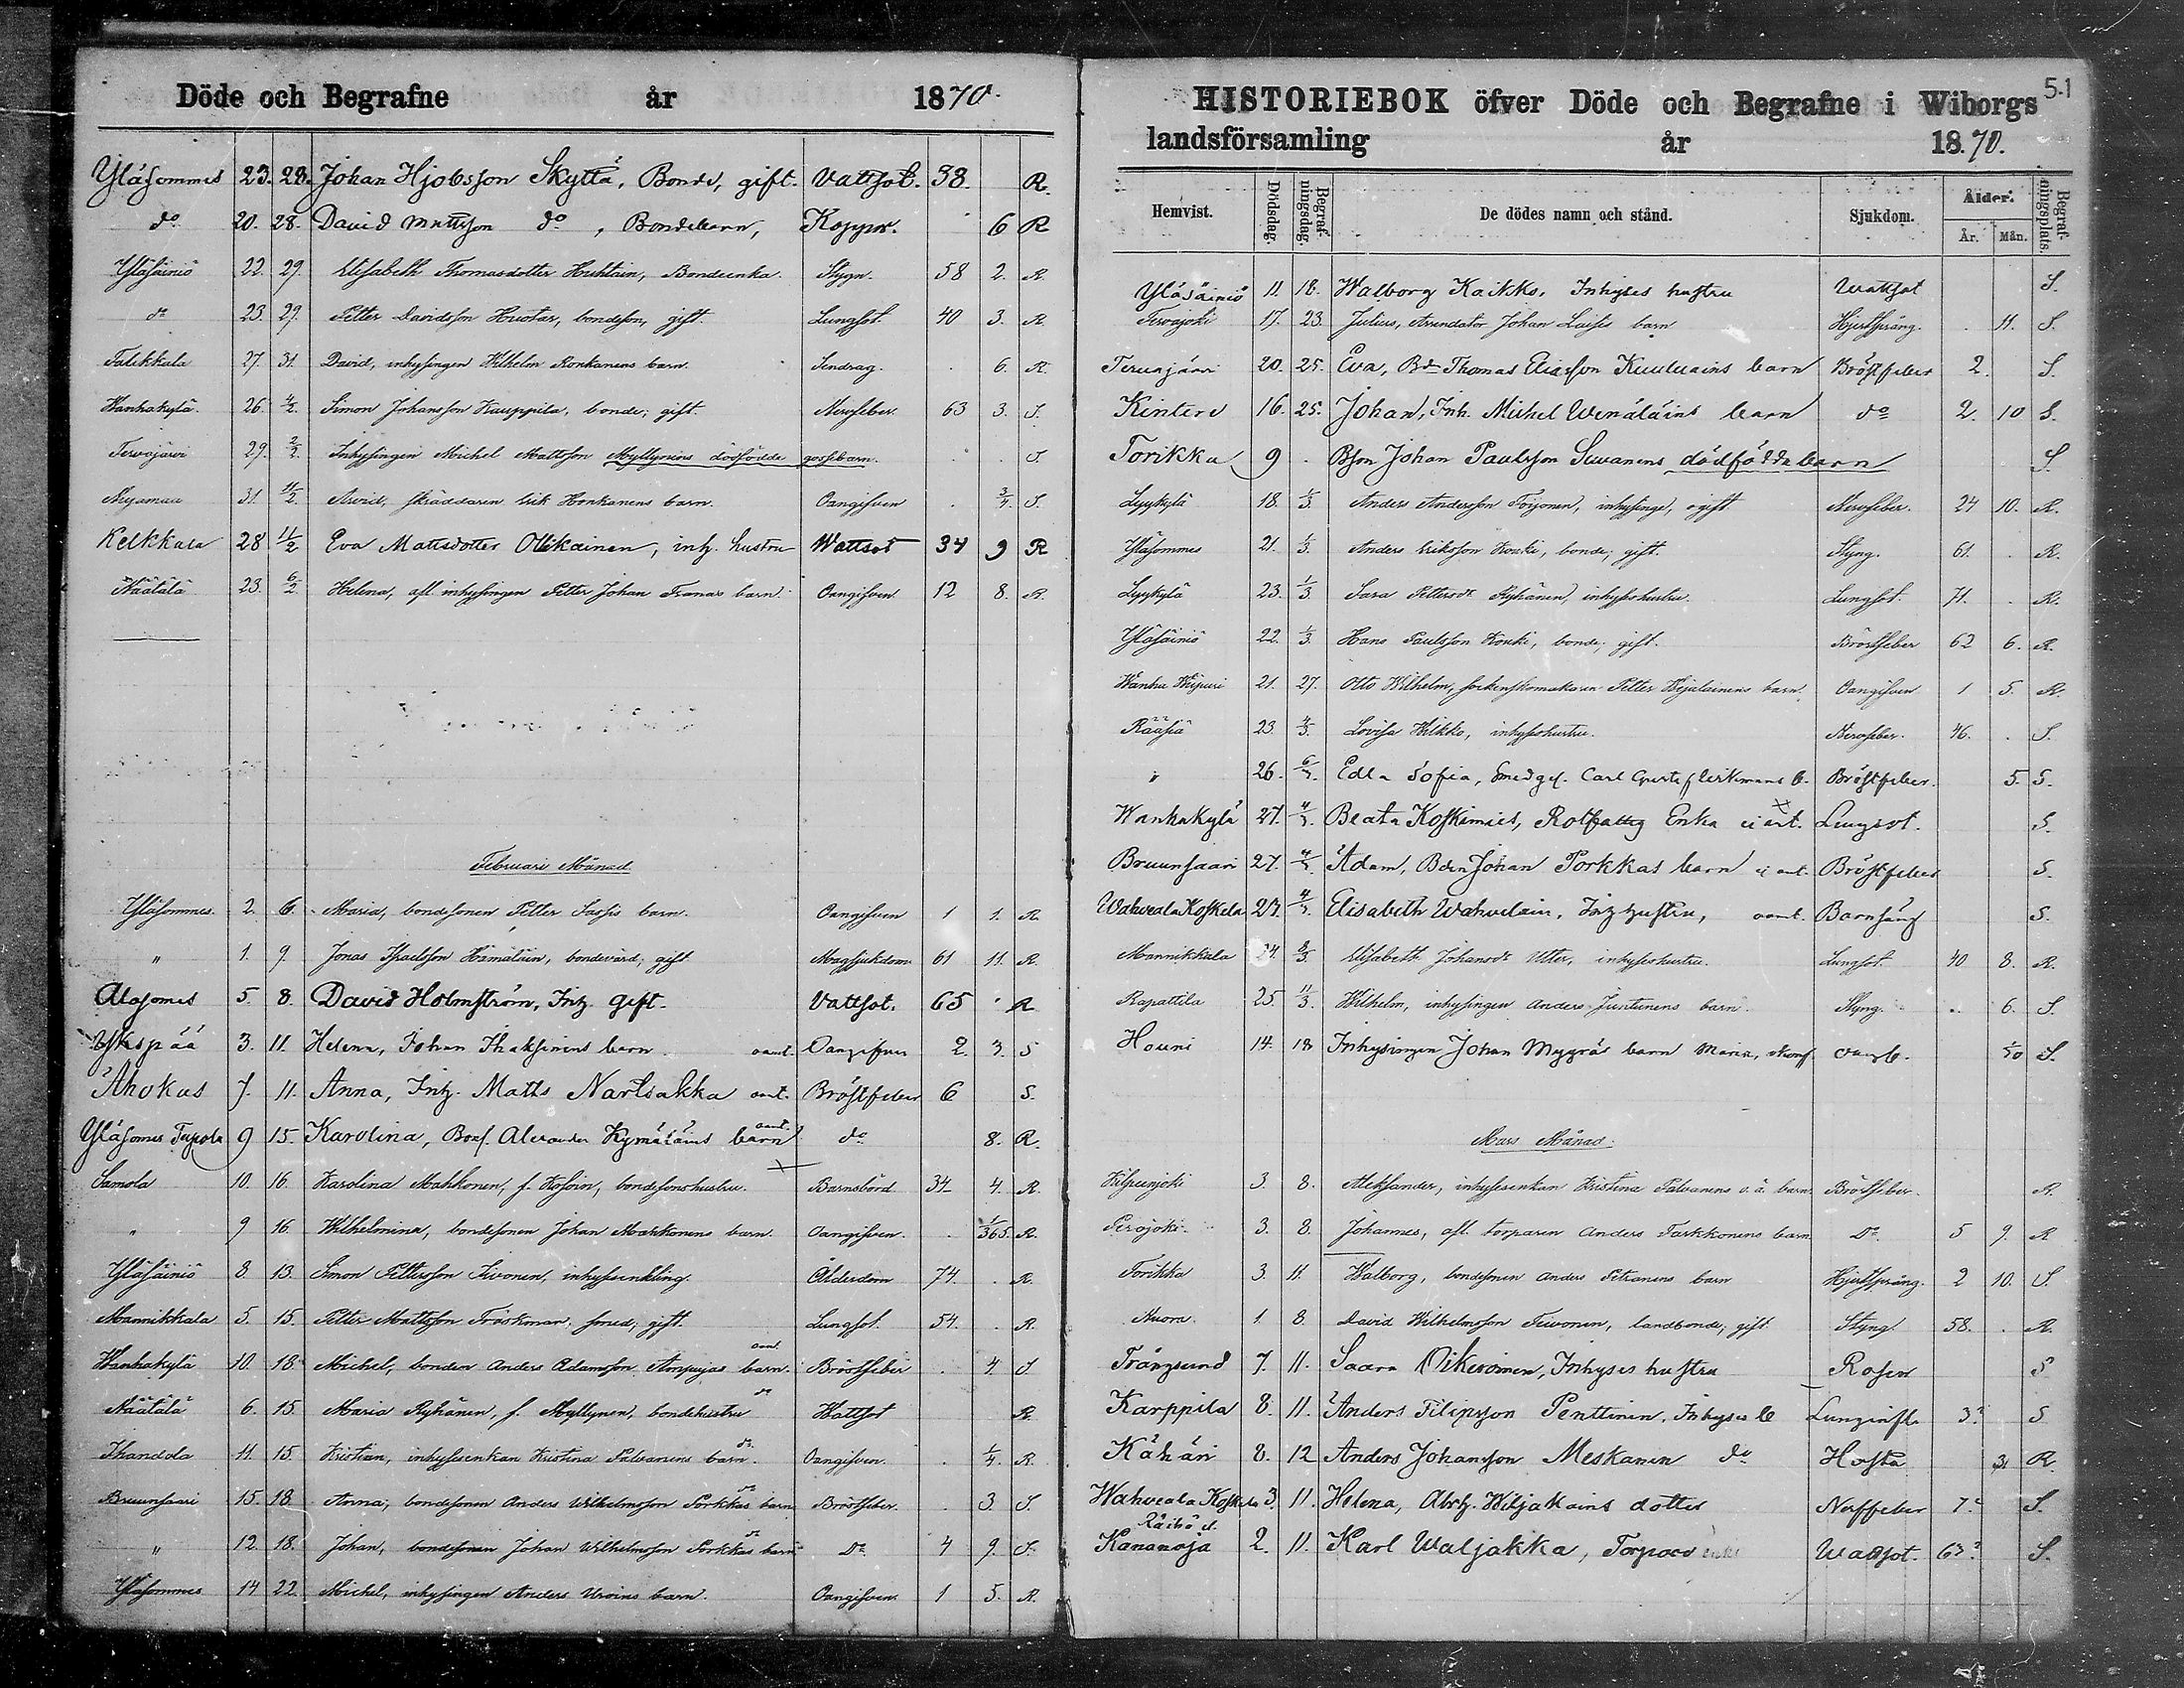 Döde och Begrafne år 1870.
Yläsommes 23. 28. Johan Hjobsson Skyttä, Bonde, gift. Vattsot. 38. R.
do 20. 28. David Mattsson do, Bondebarn, Koppor. 6 R
Yläsäiniö 22. 29. Elisabeth Thomasdotter Huhtain, Bondeenka. Stygn. 58 2. R.
do 23. 29. Petter Davidsson Huotar, bondeson, gift. Lungsot. 40 3. R.
Talikkala 27. 31. David, inhysingen Wilhelm Ronkanens barn. Sendrag. 6. R.
Wanhakylä. 26. 4/2. Simon Johansson Kauppila, bonde; gift. Nervfeber. 63 3. S.
Tervajärvi 29. 2/2. Inhysingen Michel Mattsson Myllynens dödfödde gossebarn. S.
31. 11/2. Arvid, skräddaren Erik Honkanens barn. Oangifven 3/4. S.
Kelkkala 28 11/2 Eva Mattsdotter Ollikainen, inh. hustru Wattsot 34 9 R
Näätälä 23. 6/2. Helena, afl. inhysingen Petter Johan Tranas barn. Oangifven 12 8. R.
Februari Månad
Yläsommes. 2. 6. Maria, bondesonen Petter Sassis barn. Oangifven 1 1. R
" 1. 9. Jonas Isacsson Hämäläin, bondevärd; gift Magsjukdom 61 11. R.
Alasomes 5. 8. David Holmström, Inh. gift. Vattsot. 65 R
Ykspää 3. 11. Helena, Johan barn oamt. Oangifven 2. 3. S
Ahokas 7. 11. Anna, Inh. Matts Nartsakka oamt. Bröstfeber 6 S.
Yläsomes Tapola 9 15. Karolina, Bons. Alexander Kymäläins barn oamt. do 8. R.
Samola 10. 16. Karolina Mahkonen, f. Kosoin, bondesonshustru. Barnsbörd 34 4. R.
" 9 16. Wilhelmina, bondesonen Johan Mahkonens barn. Oangifven. 1/365. R.
Yläsäiniö 8. 13. Simon Pettersson Sivonen, inhysenkling. Ålderdom 74. R.
Mannikkala 5. 15. Petter Mattsson Träskman, smed; gift. Lungsot. 54. R.
Wanhakylä 10. 18. Michel, bonden Anders Adamsson Ampujas barn. oamt. Bröstfeber 4 S
Näätälä 6. 15. Maria Ryhänen, f. Myllynen, bondehustru do Wattsot R.
Ihandola 11. 15. Kristian, inhysesenkan Kristina Palvanens barn. do. Oangifven. 1/4. R.
Bruunsaari 15. 18 Anna, bondesonen Anders Wilhelmsson Porkkas barn do Bröstfeber. 3. S.
" 12. 18. Johan, bondesonen Johan Wilhelmsson Porkkas barn do Do 4 9. S.
Yläsommes 14 22. Michel, inhysingen Anders Uroins barn. Oangifven. 1 5. R.
51
HISTORIEBOK öfver Döde och Begrafne i Wiborgs
landsförsamling år 1870.
Hemvist. Dödsdag. Begrafningsdag. De dödes namn och stånd. Sjukdom. Ålder. År. Mån. Begrafningsplats.
Yläsäiniö 11. 18. Walborg Kaikko, Inhyses hustru Wattsot S.
Tervajoki 17. 23. Julius, Arrendator Johan Laisis barn Hjertsprång. 11. S.
Tervajärvi 20. 25. Eva, Bd Thomas Eliasson Kuuluains barn Bröstfeber 2. S.
Kintere 16. 25. Johan, Inh. Michel Wenäläins barn do 2. 10 S.
Torikka 9 Bson Johan Paulsson Suvanens dödfödda barn S
Lyykylä 18. 1/3. Anders Andersson Toijonen, inhysinge, ogift Nervfeber. 24 10. R.
Yläsommes 21. 1/3. Anders Eriksson Kouki, bonde; gift. Styng. 61. R.
Lyykylä 23. 1/3. Sara Pettersdr Ryhänen, inhyseshustru. Lungsot. 71. R.
Yläsäiniö 22. 1/3. Hans Paulsson Kouki, bonde; gift. Bröstfeber 62 6. R.
Wanha Wiipuri 21. 27. Otto Wilhelm, sockenskomakaren Petter Wijalainens barn. Oangifven 1 5. R.
Rääsiä 23. 4/3. Lovisa Wilkko, inhyseshustru. Nervfeber. 46. S.
" 26. 6/3. Edla Sofia, Smedges. Carl b. Bröstfeber. 5. S.
Wanhakylä 27. 4/3. Beata Koskimies, Rotfattig Enka ei ant. Lungsot. S.
Bruunsaari 27. 4/3. Adam, Bden Johan Porkkas barn ei ant. Bröstfeber S.
Wahveala Koskela 27. 4/3. Elisabeth Wahvelain, Inh hustru, oamt. Barnsäng S.
Mannikkala 24. 8/3. Elisabeth Johansdr Utter, inhyseshustru. Lungsot. 40 8. R.
Rapattila 25. 11/3. Wilhelm, inhysingen Anders Juntunens barn. Styng. 6. S.
Houni 14. 18 Inhysingen Johan Myyräs barn Maria, S.
Mars Månad.
Kilpeenjoki 3 8. Aleksander, inhysesenkan Kristina Palvanens o.ä. barn. Bröstfeber. R.
Perojoki. 3. 8. Johannes, afl. torparen Anders Tarkkonens barn. Do 5 9. R
Torikka 3. 11. Walborg, bondesonen Anders Pitranens barn Hjertsprång. 2 10. S.
Nuora. 1. 8 David Wilhelmsson Teivonen, landbonde; gift Styng. 58. R.
Trångsund 7. 11. Saara Oikeroinen, Inhyses hustru Rosen S
Karppila 8. 11. Anders Filipsson Penttinen, Inhyses b Lunginfl. 3? S
Kähäri 8. 12 Anders Johansson Meskanen do Hosta 3 R.
Wahveala Koskela 3. 11. Helena, Abrh. Wiljakains dotter Nerffeber 7? S.
Kananoja 2. 11. Karl Waljakka, Torpare Wattsot. 63? S.